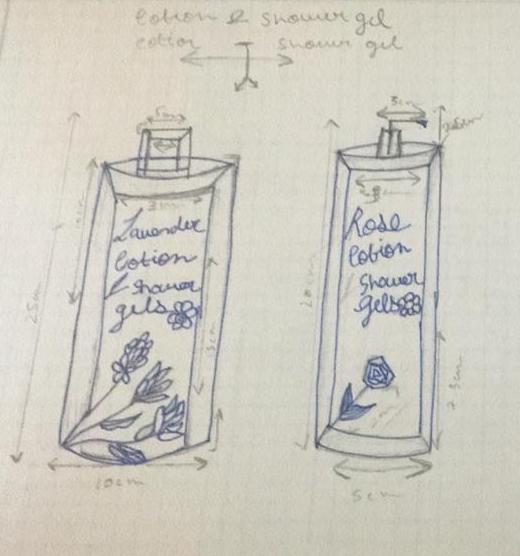 Lotion & shower gel
lotion shower gel
5cm
3cm
Lavender
lotion
/ shower
gels
25cm
10cm
3cm
Rose
lotion
/ shower
gels
20cm
5cm